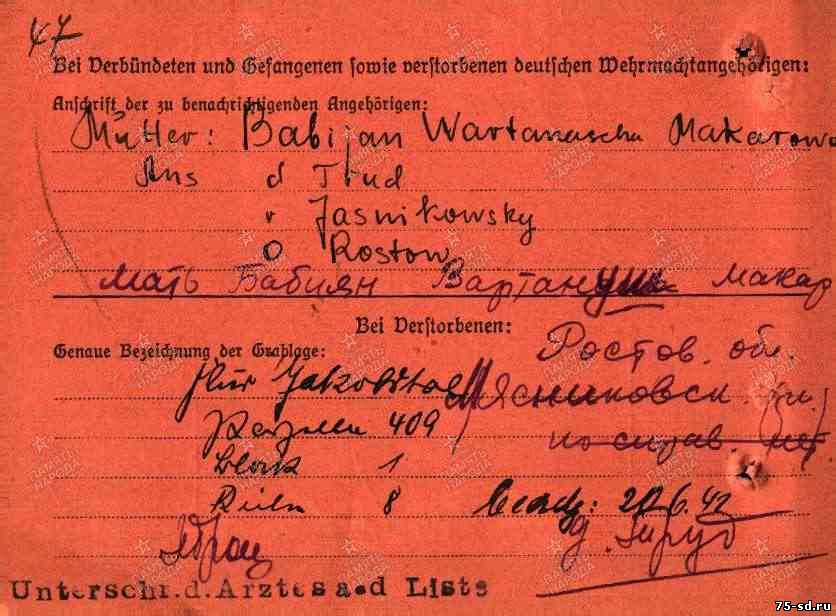 47
Bei Verbündeten und Gefangenen sowie verstorbenen deutschen Wehrmachtangehörigen:
Anschrift der zu benachrichtigenden Angehörigen:
Mutter: Babijan Wartanuscha Makarowa
Ans d Trud
r Jasnikowsky
O Rostow
Мать Бабиян Вартануш Макар
Bei Verstorbenen:
Genaue Bezeichnung der Grablage:
Ростов. обл.
Flur Jakobstal
Мясниковск. р-н
Parzelle 409
по справ. нет
Block 1
Reihe 8
Beerdg: 20.6.42
Unterschr.d.Arztes a.d Liste
75-sd.ru